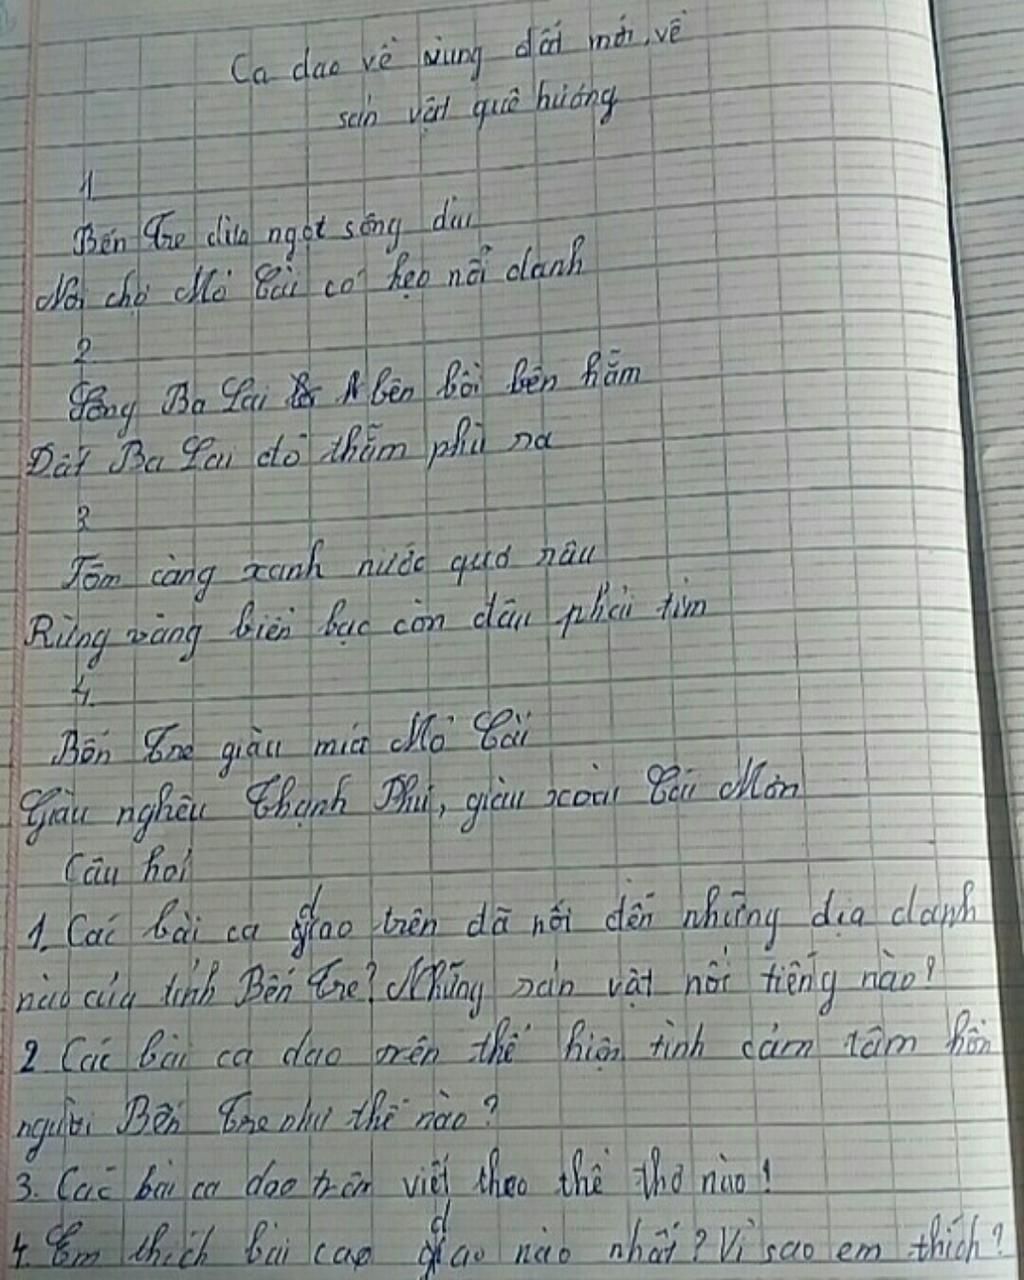 Ca dao về vùng đất mới, về
sản vật quê hương
1
Bến Tre dừa ngọt sông dài
Nơi chợ Mỏ Cày có kẹo nổi danh
2
Sông Ba Lai bên bồi bên hãm
Đất Ba Lai đỏ thẫm phù sa
3
Tôm càng xanh nước quơ râu
Rừng vàng biển bạc còn đâu phải tìm
4.
Bến Tre giàu mía Mỏ Cày
Giàu nghêu Thạnh Phú, giàu xoài Cái Mơn
Câu hỏi
1. Các bài ca dao trên đã nói đến những địa danh
nào của tỉnh Bến Tre? Những sản vật nổi tiếng nào?
2 Các bài ca dao trên thể hiện tình cảm tâm hồn
người Bến Tre như thế nào?
3. Các bài ca dao trên viết theo thể thơ nào!
4. Em thích bài ca dao nào nhất? Vì sao em thích?